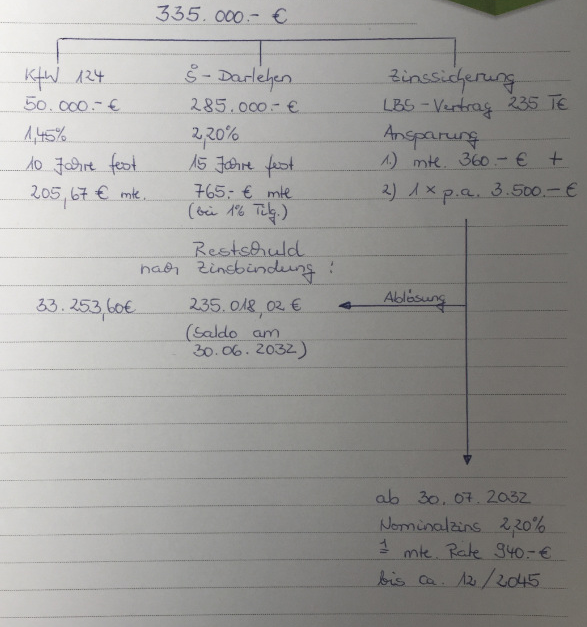 335.000.- €
KfW 124
50.000.- €
1,45%
10 Jahre fest
205,67 € mtl.
S-Darlehen
285.000.- €
2,20%
15 Jahre fest
765,- € mtl
(bei 1% Tilg.)
Zinssicherung
LBS-Vertrag 235 T€
Ansparung
1.) mtl. 360.- € +
2.) 1 x p.a. 3.500.- €
Restschuld
nach Zinsbindung :
33.253,60€
235.018,02 €
(Saldo am
30.06.2032)
Ablösung
ab 30.07.2032
Nominalzins 2,20%
mtl. Rate 940.- €
bis ca. 12/2045